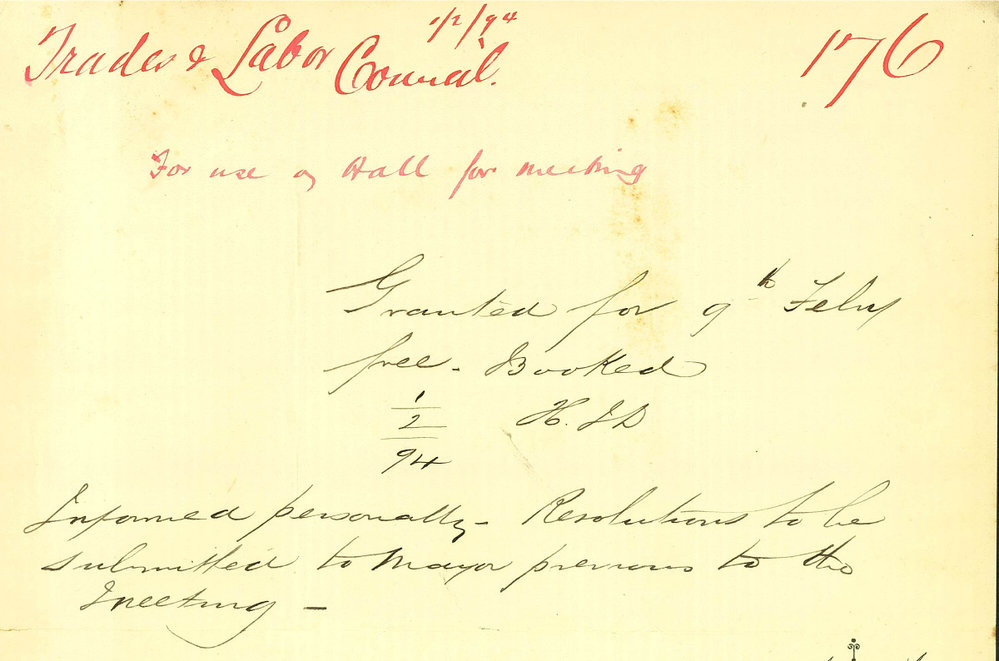 1/2/94
Trades & Labor Council. 176
For use of Hall for meeting
Granted for 9th Feby
free - Booked
1/2/94 H. J D
Informed personally - Resolutions to be
submitted to Mayor previous to the
meeting -